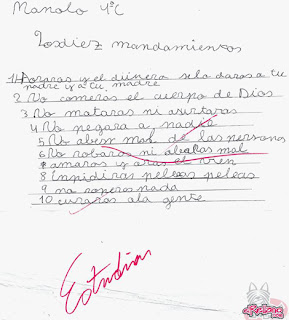 Manolo 4ºC
Los diez mandamientos
1 Horaras y el dinero selo daras a tu
madre y a tu madre
2 No comeras el cuerpo de Dios
3 No mataras ni asustaras
4 No negara a nadie
5 No abes mal de las personas
6 No robaras ni mal
7 amaros y aras el vien
8 Inpidiras peleas peleas
9 no roperas nada
10 curaras ala gente
Estudiar